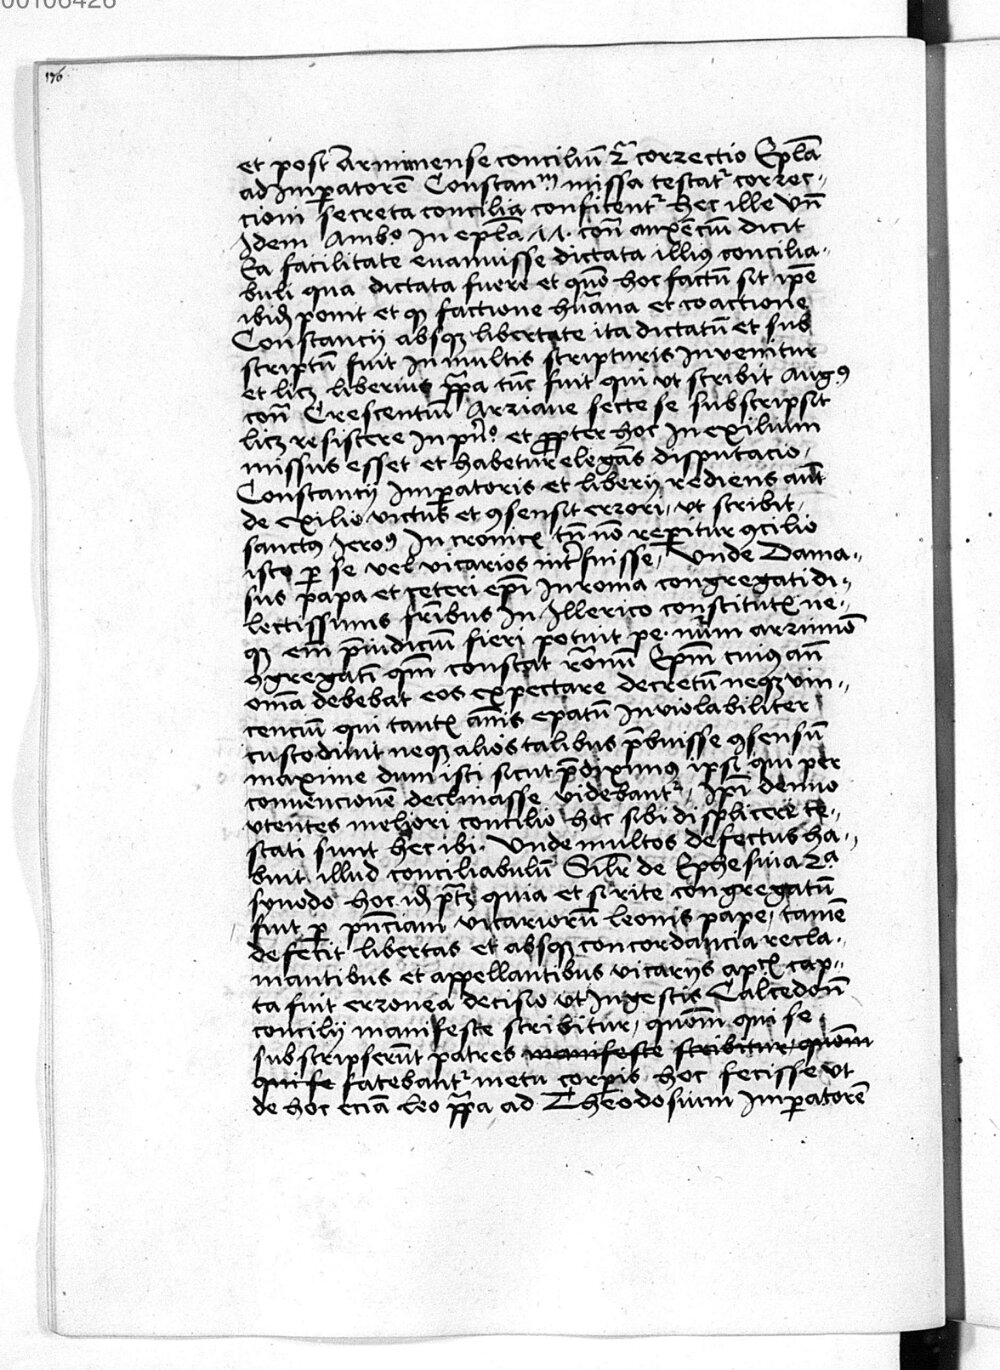 00106426
176
et post Arminense conciliū 2ͣ correctio Ep̄la
ad Imꝑatorē Constanᵐ missa testatʳ correc-
cioni secreta concilia conficentʳ hec ille Vn̄
Idem Ambᵒ In ep̄la con̄ auxēciū dicit
Ea facilitate euanuisse dictata illius concilia-
buli qua dictata fuere et quō hoc factū sit ip̄e
ibiđ ponit et ꝙ factione hūana et coactione
Constancij absqꝫ libertate ita dictatū et sub
scriptū fuit In multis scripturis Inuenitur
et licꝫ liberius pp̄a tūc fuit qui vt scribit Augꝰ
con̄ Crescentiū Arriane secte se subscripsit
licꝫ resistere In pn̄º et ꝓpter hoc In exilium
missus esset et habetur elegās disputacio
Constantij Imꝑatoris et liberij rediens aūt
de exilio victus et ꝯsensit errori, vt scribit
sanctꝰ Ieroꝰ In cronicꝭ tn̄ nō reꝑitur ꝯcilio
isto ꝑ se vel vicarios int̄fuisse, Vnde Dama-
sus papa et ceteri ep̄i In roma congregati di-
lectissimis fr̄ibus In Illerico constitutꝭ ne-
qꝫ em̄ p̄iudiciū fieri potuit pe. nūm arriminō
ꝯgregati qm̄ constat rōnū Ep̄m cuius an̄
om̄a debebat eos expectare decretū neqꝫ vin-
cenciū qui tantꝭ annis ep̄atū Inuiolabiliter
custodiuit neqꝫ alios talibus p̄buisse ꝯsensū
maxime dum isti sicut p̄diximus ipsi qui per
conuencionē declinasse videbantʳ, Ip̄i denuo
vtentes meliori concilio hoc sibi displicere te-
stati sunt hec ibi. Vnde multos defectus ha-
buit illud conciliabulū Sil̄r de Ephesina 2ͣ
synodo hoc iđ ptꝫ quia et si rite congregatū
fuit ꝑ pn̄ciam vicariorū leonis pape, tamē
defecit libertas et absqꝫ concordancia recla-
mantibus et appellantibus vicarijs apcꝭ cap-
ta fuit erronea decisio vt In gestis Calcedoñ
concilij manifeste scribitur, quōm qui se
subscripserūt patres manifeste scribitur, quōm
qui se fatebantʳ metu corꝑis hoc fecisse vt
de hoc eciā leo pp̄a ad Theodosium Imꝑatorē